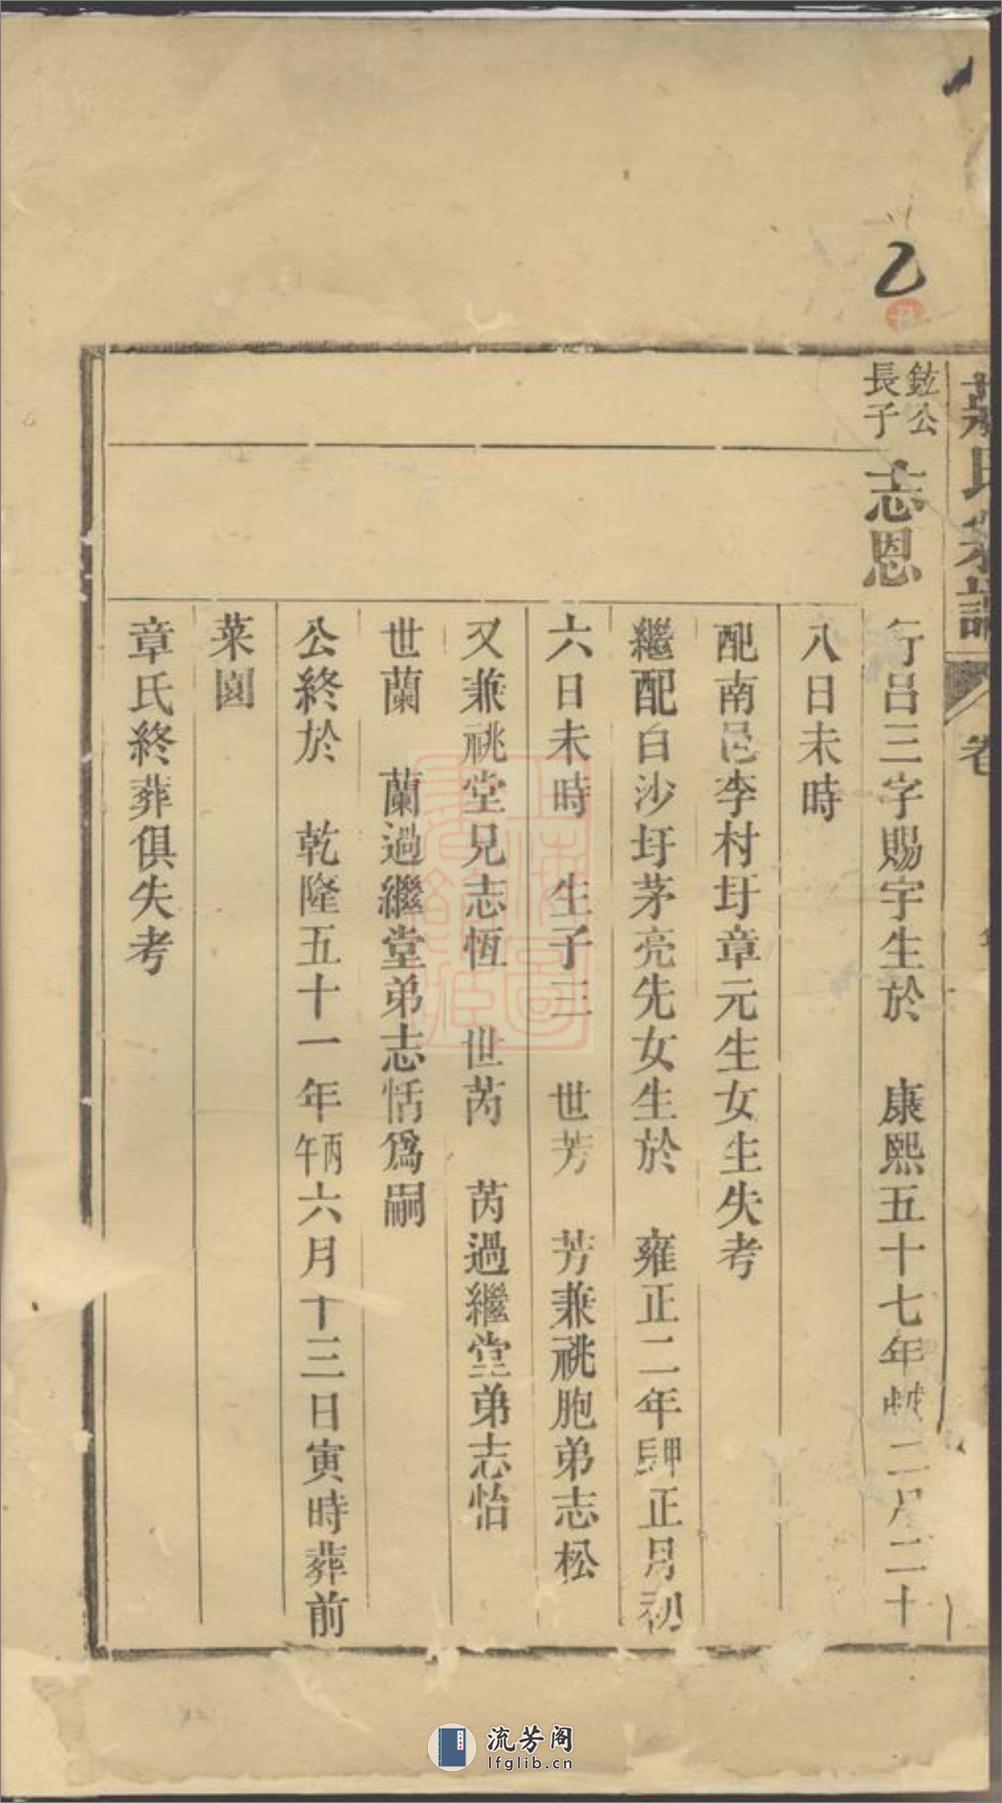 乙
氏宗譜
卷
鉉公
長子
志恩
行呂三字賜宇生於 康熙五十七年戊戌二月二十
八日未時
配南邑李村圩章元生女生失考
繼配白沙圩茅亮先女生於 雍正二年甲辰正月初
六日未時 生子三 世芳 芳兼祧胞弟志松
又兼祧堂兄志恆 世芮 芮過繼堂弟志怡
世蘭 蘭過繼堂弟志恬爲嗣
公終於 乾隆五十一年丙午六月十三日寅時葬前
菜園
章氏終葬俱失考
流芳阁
lfglib.cn